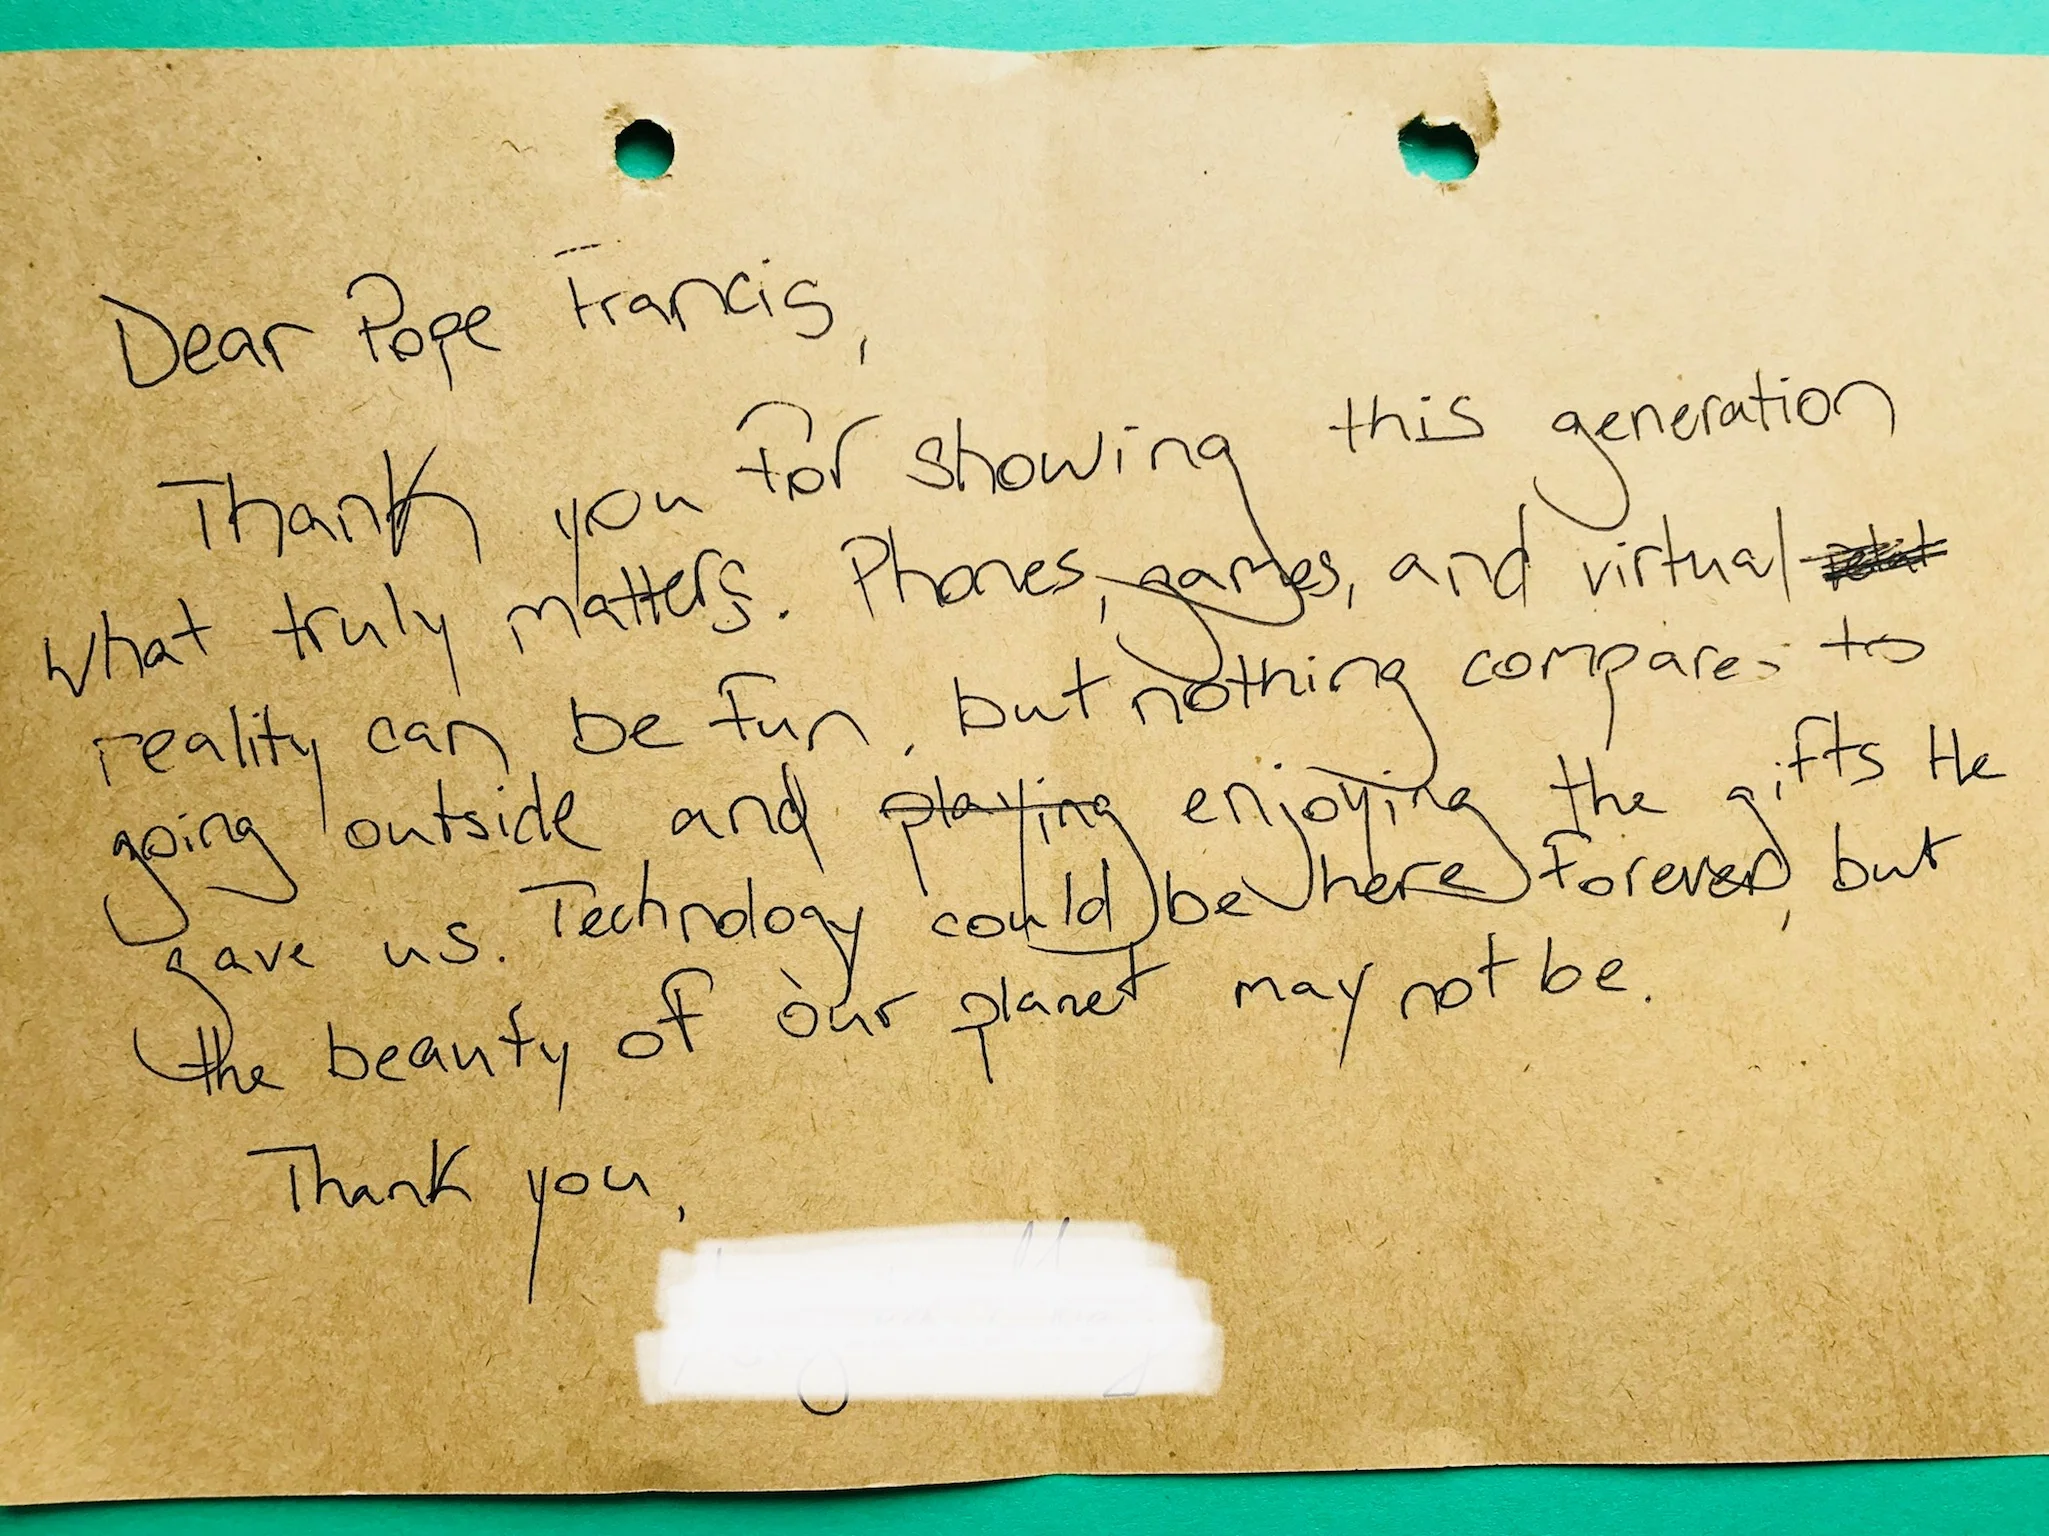 Dear Pope Francis,
Thank you for showing this generation
what truly matters. Phones, games, and virtual
reality can be fun, but nothing compares to
going outside and playing enjoying the gifts He
gave us. Technology could be here forever, but
the beauty of our planet may not be.
Thank you,